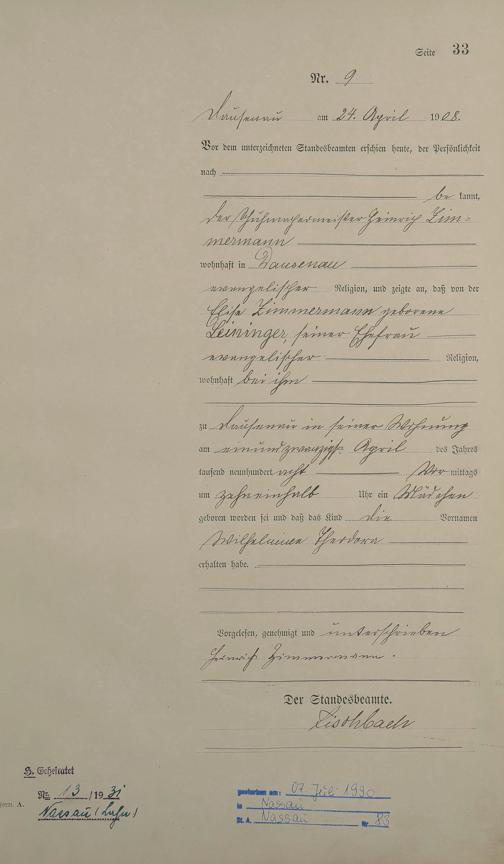 Seite 33
Nr. 9
Dausenau am 24. April 1908.
Vor dem unterzeichneten Standesbeamten erschien heute, der Persönlichkeit
nach
be kannt,
der Schuhmachermeister Heinrich Zim=
mermann
wohnhaft in Dausenau
evangelischer Religion, und zeigte an, daß von der
Elise Zimmermann geborene
Leininger, seiner Ehefrau
evangelischer Religion,
wohnhaft bei ihm
zu Dausenau in seiner Wohnung
am einundzwanzigst. April des Jahres
tausend neunhundert acht Vor mittags
um zehneinhalb Uhr ein Mädchen
geboren worden sei und daß das Kind die Vornamen
Wilhelmine Theodora
erhalten habe.
Vorgelesen, genehmigt und unterschrieben
Heinrich Zimmermann.
Der Standesbeamte.
Fischbach
H. Geheiratet
Nr. 13 / 1931
Nassau (Lahn)
orm. A.
gestorben am: 07. Juli 1990
in Nassau
St. A. Nassau Nr. 83